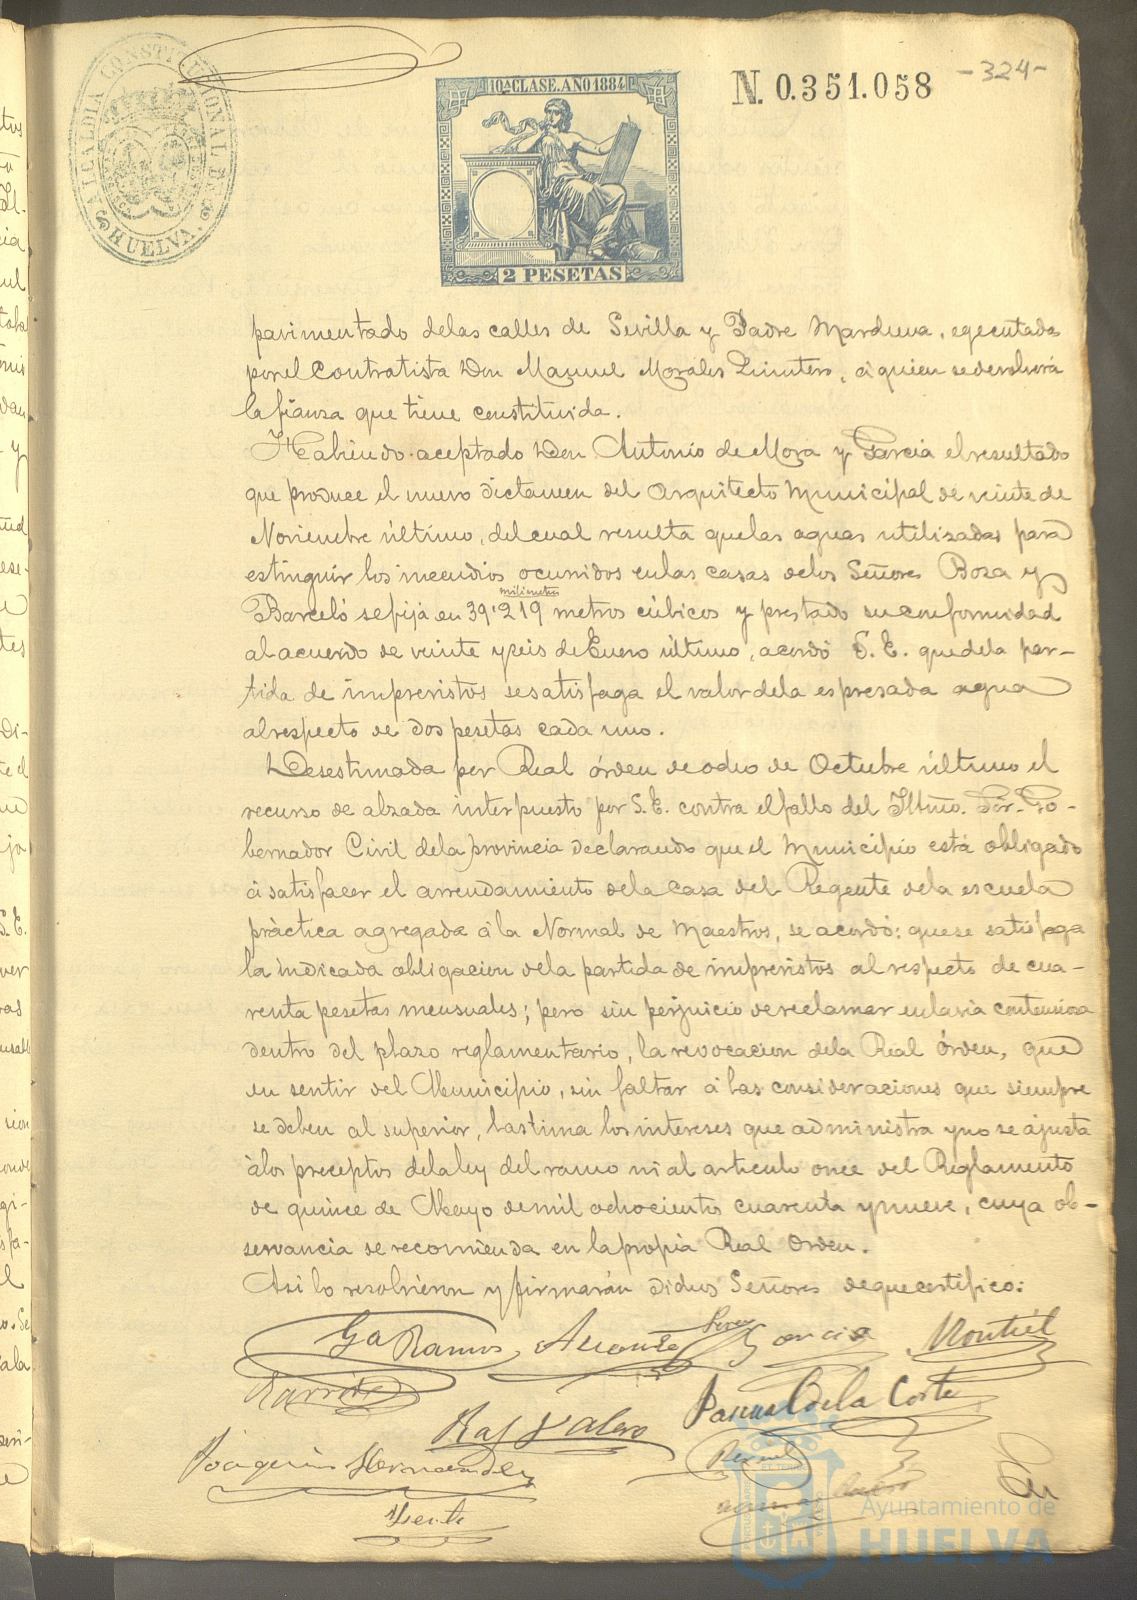 -324-
ALCALDIA CONSTITUCIONAL DE HUELVA.
10ª CLASE. AÑO 1884
N. 0.351.058
2 PESETAS
pavimentado delas calles de Sevilla y Padre Marchena, egecutada
porel Contratista Don Manuel Morales Quintero, á quien sedevolverá
la fianza que tiene constituida.
Habiendo aceptado Don Antonio de Mora y Garcia elresultado
que produce el nuevo dictamen del Arquitecto Municipal de veinte de
Noviembre último, delcual resulta quelas aguas utilizadas para
estinguir los incendios ocurridos enlas casas delos Señores Boza y
milimetros
Barceló sefija en 39'219 metros cúbicos y prestado suconformidad
alacuerdo de veinte yseis deEnero último, acordó S. E. quedela par-
tida de imprevistos sesatisfaga el valordela espresada agua
alrespecto de dos pesetas cada uno.
Desestimada por Real órden deocho de Octubre último el
recurso de alzada interpuesto por S. E. contra elfallo del Iltmo. Sor. Go-
bernador Civil dela provincia declarando que el Municipio está obligado
á satisfacer el arrendamiento dela casa del Regente dela escuela
práctica agregada á la Normal de Maestros, se acordó: quese satisfaga
la indicada obligacion dela partida de imprevistos al respecto de cua-
renta pesetas mensuales; pero sin perjuicio dereclamar enlavia contenciosa
dentro del plazo reglamentario, la revocacion dela Real Órden, que
en sentir del Municipio, sin faltar á las consideraciones que siempre
se deben al superior, lastima los intereses que administra yno se ajusta
álos preceptos delaley del ramo ni al articulo once del Reglamento
de quince de Mayo demil ochocientos cuarenta ynueve, cuya ob-
servancia se recomienda en la propia Real Orden.
Asi lo resolvieron y firmarán dichos Señores dequecertifico:
Ga Ramos Garcia Montiel
Pascual de la Corte
Raf Valero
Joaquin Hernandez
Ayuntamiento de
HUELVA